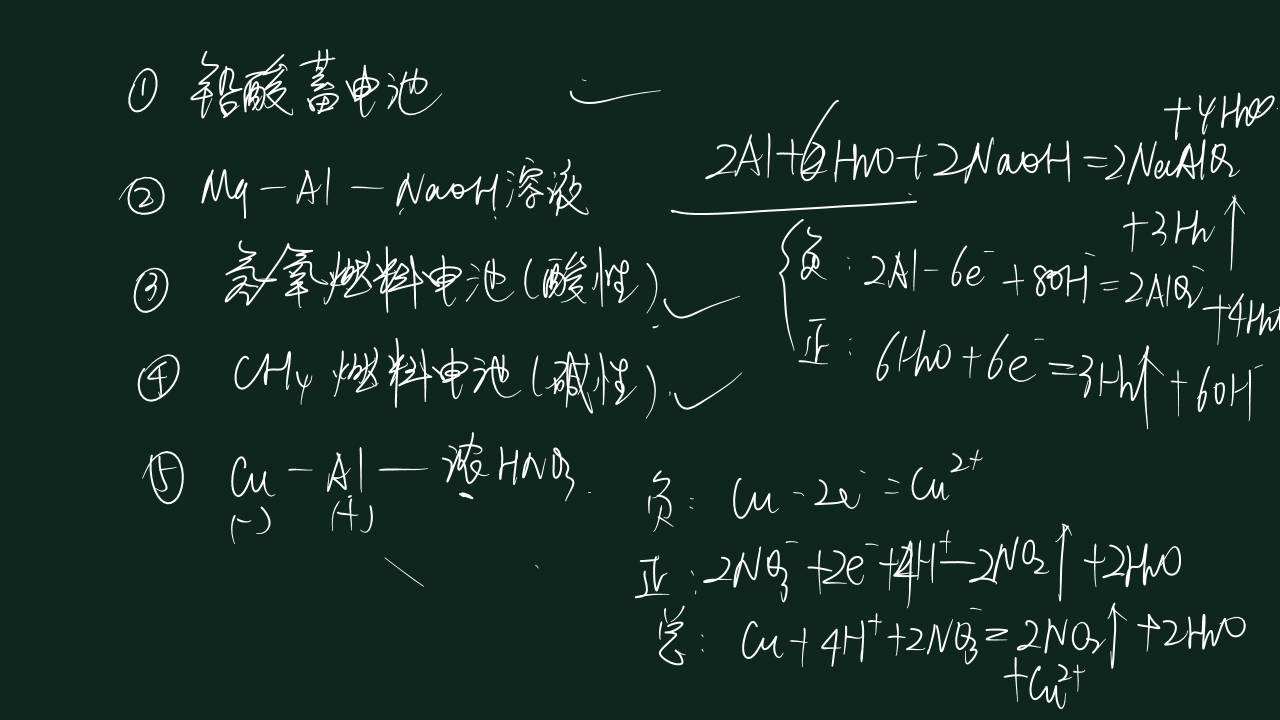 ① 铅酸蓄电池
② Mg-Al-NaOH溶液
③ 氢氧燃料电池(酸性)
④ CH₄燃料电池(碱性)
⑤ Cu-Al-浓HNO₃
(-) (+)
2Al+6H₂O+2NaOH=2NaAlO₂
+4H₂O
+3H₂↑
负: 2Al-6e⁻+8OH⁻=2AlO₂⁻
+4H₂O
正: 6H₂O+6e⁻=3H₂↑+6OH⁻
负: Cu-2e⁻=Cu²⁺
正: 2NO₃⁻+2e⁻+4H⁺—2NO₂↑+2H₂O
总: Cu+4H⁺+2NO₃⁻=2NO₂↑+2H₂O
+Cu²⁺